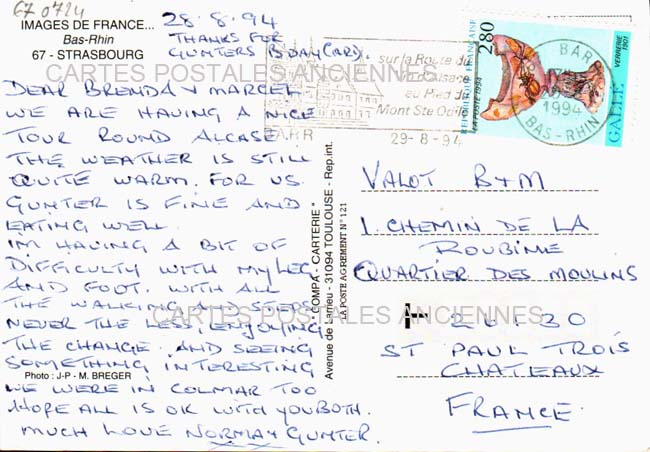 67 0724
IMAGES DE FRANCE...
Bas-Rhin
67 - STRASBOURG
28.8.94
THANKS FOR
GUNTERS B.DAY CARD.
DEAR BRENDA & MARCEL
WE ARE HAVING A NICE
TOUR ROUND ALCASE
THE WEATHER IS STILL
QUITE WARM. FOR US.
GUNTER IS FINE AND
EATING WELL.
IM HAVING A BIT OF
DIFFICULTY WITH MY LEG
AND FOOT. WITH ALL
THE WALKING AND STEPS
NEVER THE LESS, ENJOYING
THE CHANGE. AND SEEING
SOMETHING INTERESTING
WE WERE IN COLMAR TOO
HOPE ALL IS OK WITH YOU BOTH.
MUCH LOVE NORMA & GUNTER.
Photo : J-P - M. BREGER
CARTES POSTALES ANCIENNES
CARTES POSTALES ANCIENNES
" COMPA - CARTERIE "
Avenue de Larrieu - 31094 TOULOUSE - Rep.int.
LA POSTE AGREMENT N° 121
BARR
sur la Route du
Vin d'Alsace
au Pied du
Mont Ste Odile
29-8-94
BARR
1994
BAS-RHIN
280
REPUBLIQUE FRANÇAISE
LA POSTE 1994
GALLÉ
VERRERIE
1901
VALOT B+M
1. CHEMIN DE LA
ROUBINE
QUARTIER DES MOULINS
F- 26130
ST PAUL TROIS
CHATEAUX
FRANCE.